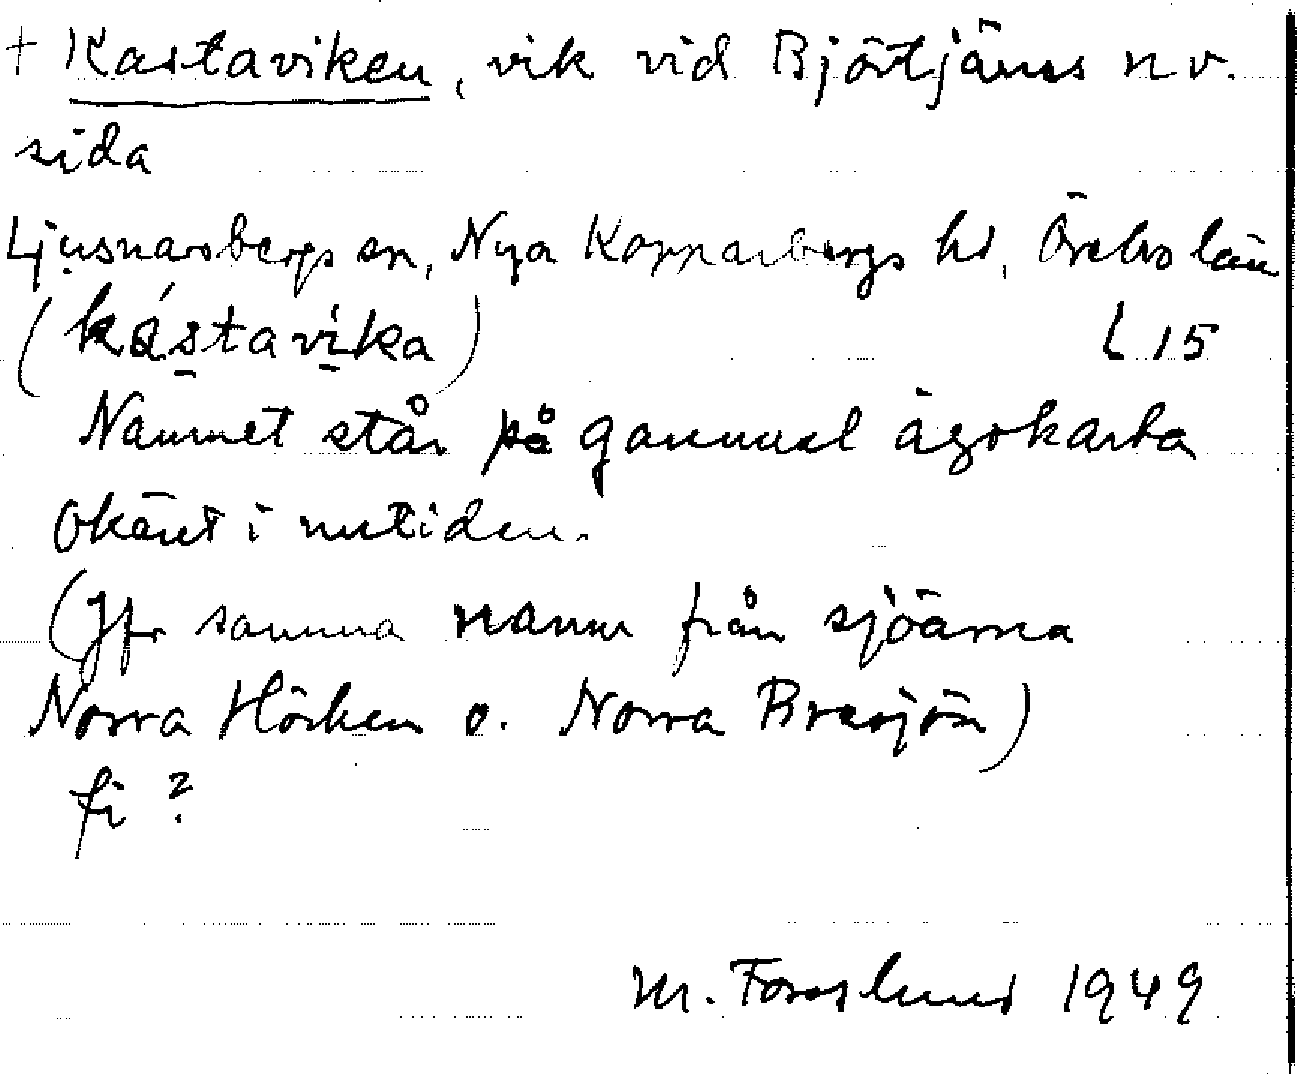 + Kastaviken, vik vid Björtjärns n v.
sida
Ljusnarsbergs sn, Nya Kopparbergs hd, Örebro län
(kástavika) L 15
Namnet står på gammal ägokarta
Okänt i nutiden.
(Jfr samma namn från sjöarna
Norra Hörken o. Norra Bresjön)
fi ?
M. Forslund 1949